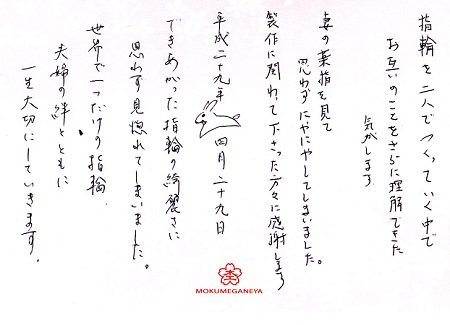 指輪を二人でつくっていく中で
お互いのことをさらに理解できた
気がします
妻の薬指を見て
思わずにやにやしてしまいました。
製作に関わって下さった方々に感謝します
平成二十九年 四月二十九日
できあがった指輪の綺麗さに
思わず見惚れてしまいました。
世界で一つだけの指輪、
夫婦の絆とともに
一生大切にしていきます。
MOKUMEGANEYA